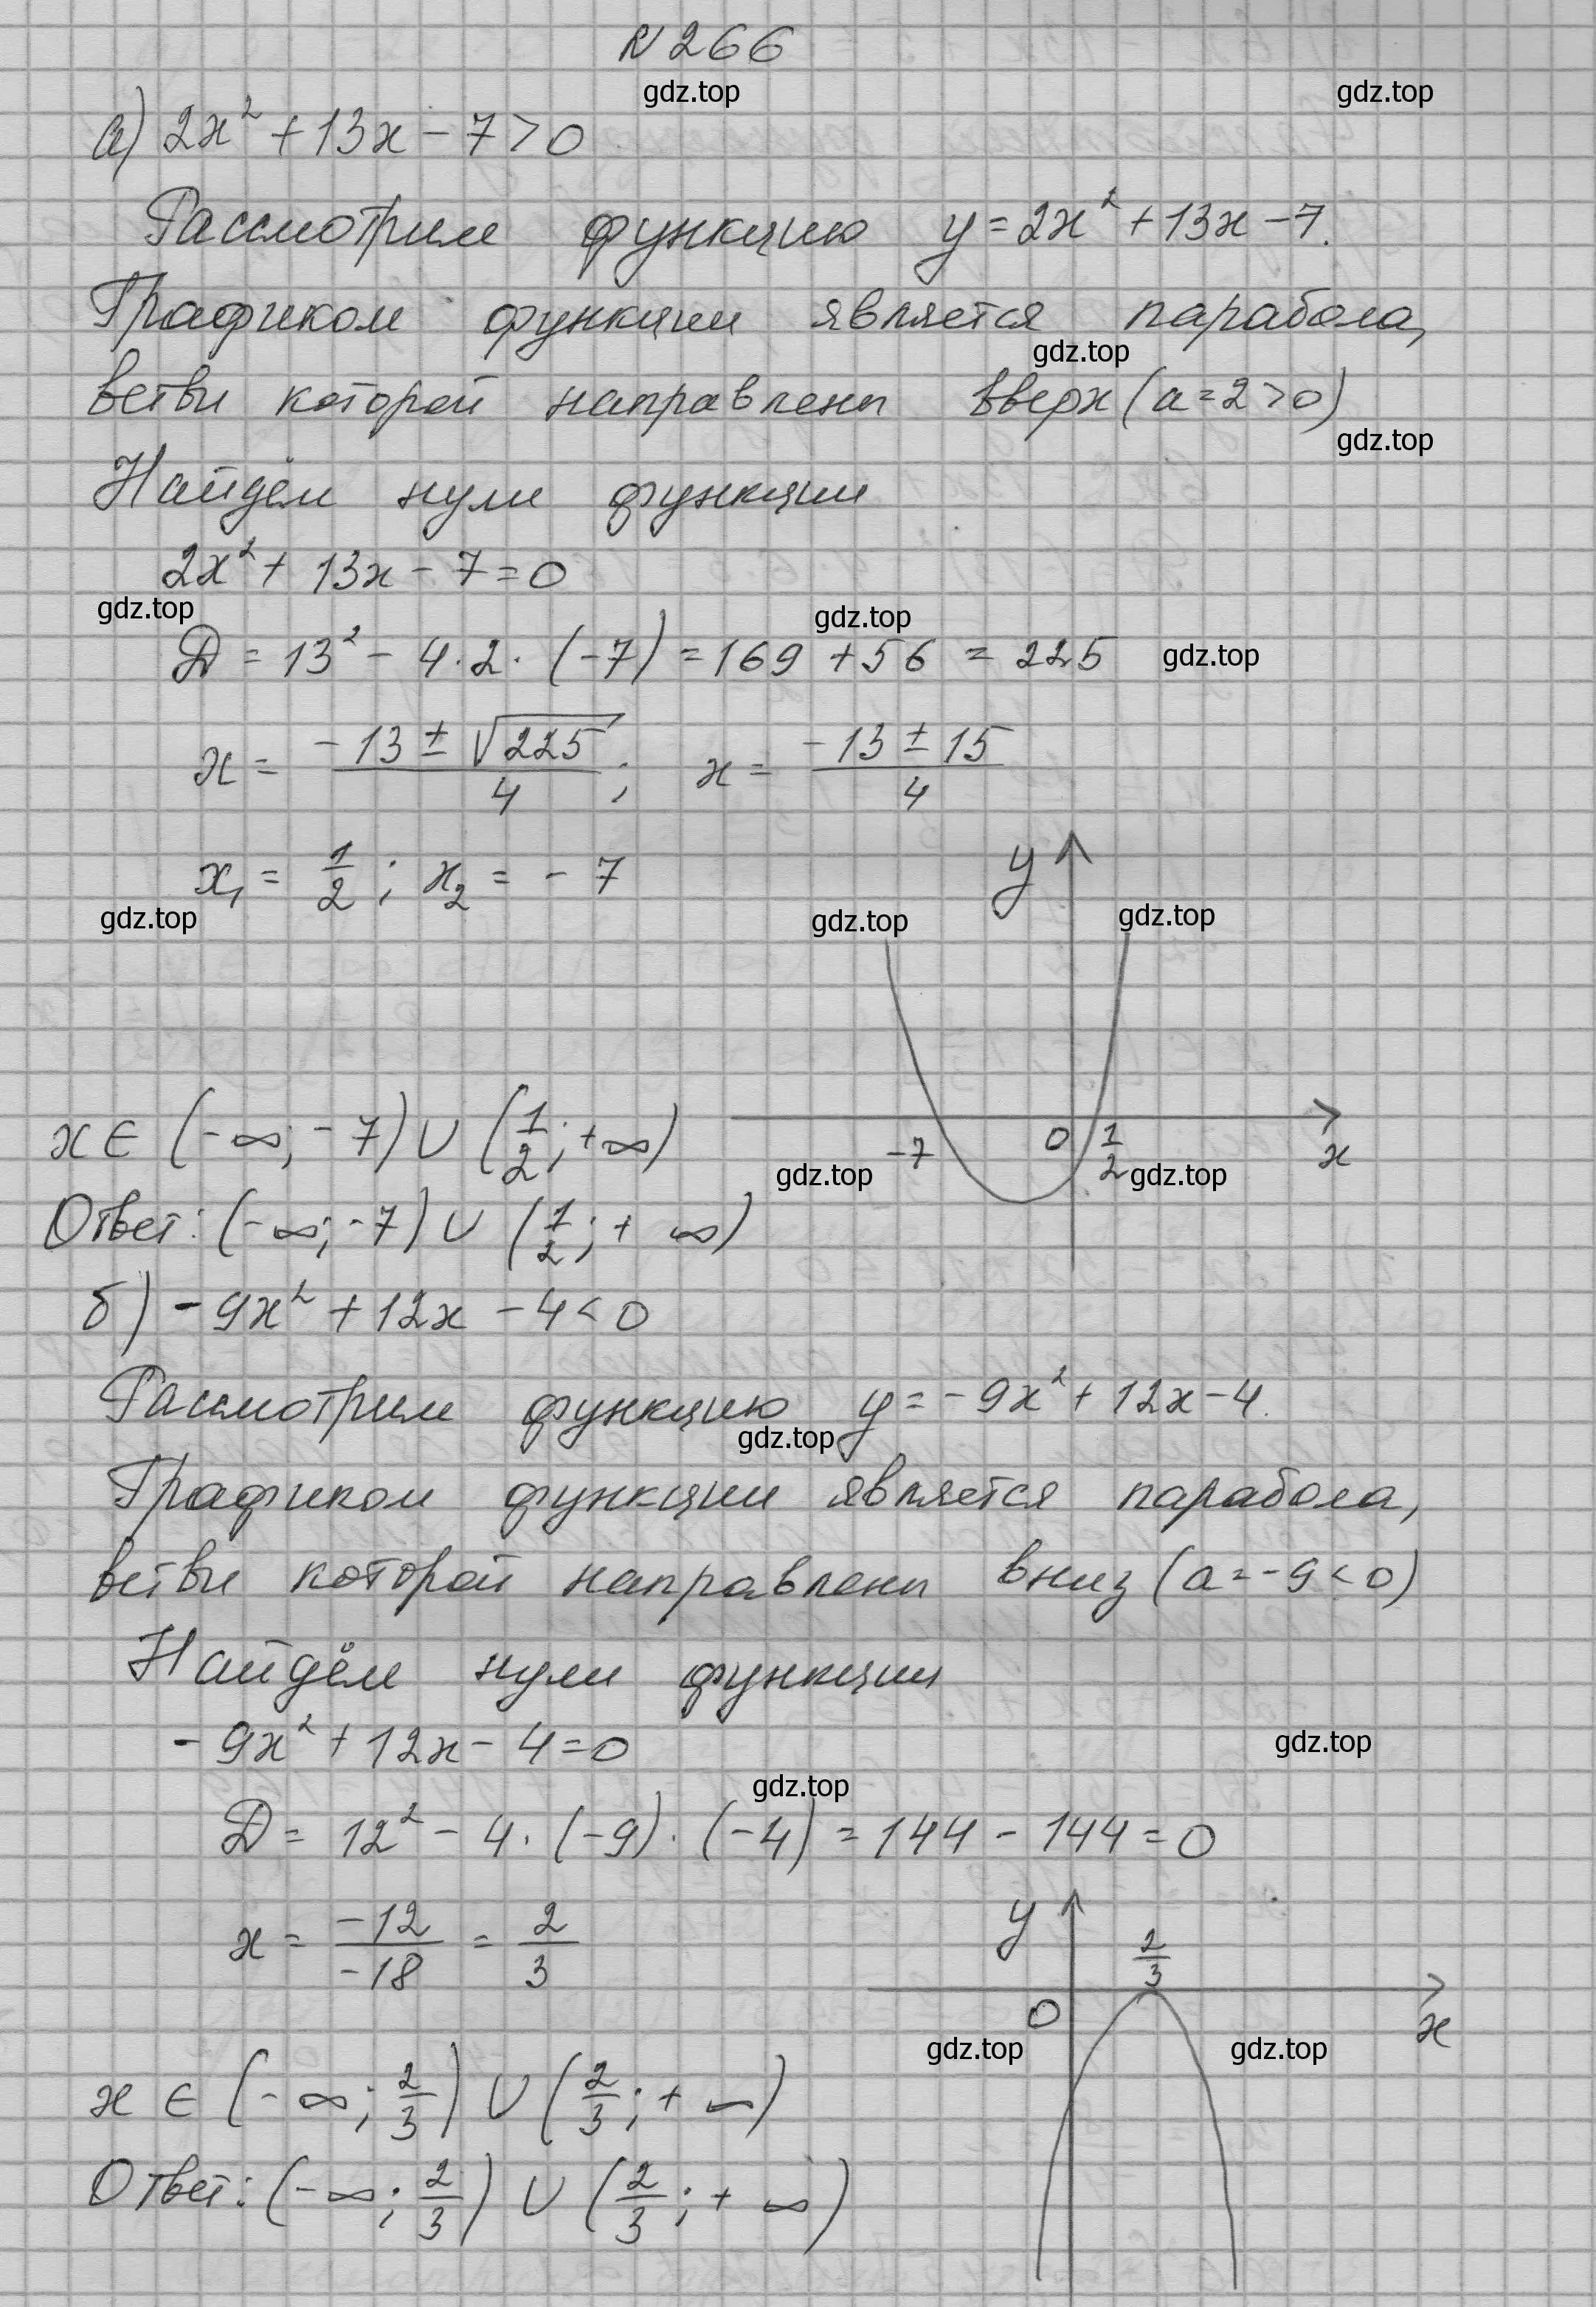 N 266
gdz.top gdz.top
а) 2x² + 13x - 7 > 0
Рассмотрим функцию y = 2x² + 13x - 7.
Графиком функции является парабола,
gdz.top
ветви которой направлены вверх (a = 2 > 0)
gdz.top
Найдём нули функции
2x² + 13x - 7 = 0
gdz.top gdz.top
Д = 13² - 4 · 2 · (-7) = 169 + 56 = 225 gdz.top
x = (-13 ± √225)/4 ; x = (-13 ± 15)/4
x₁ = 1/2 ; x₂ = - 7
y
gdz.top gdz.top gdz.top
x ∈ (-∞; -7) ∪ (1/2; +∞)
-7 0 1/2 x
gdz.top gdz.top
Ответ: (-∞; -7) ∪ (1/2; + ∞)
б) - 9x² + 12x - 4 < 0
Рассмотрим функцию y = - 9x² + 12x - 4.
gdz.top
Графиком функции является парабола,
ветви которой направлены вниз (a = -9 < 0)
Найдём нули функции
- 9x² + 12x - 4 = 0
gdz.top
gdz.top
Д = 12² - 4 · (-9) · (-4) = 144 - 144 = 0
x = -12/-18 = 2/3
y 2/3
0 x
gdz.top gdz.top
x ∈ (-∞; 2/3) ∪ (2/3; + ∞)
Ответ: (-∞; 2/3) ∪ (2/3; + ∞)